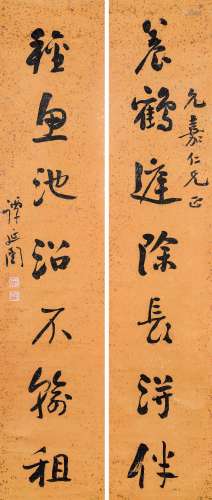 允嘉仁兄正
養鶴庭除長得伴
種魚池沼不輸租
譚延闓